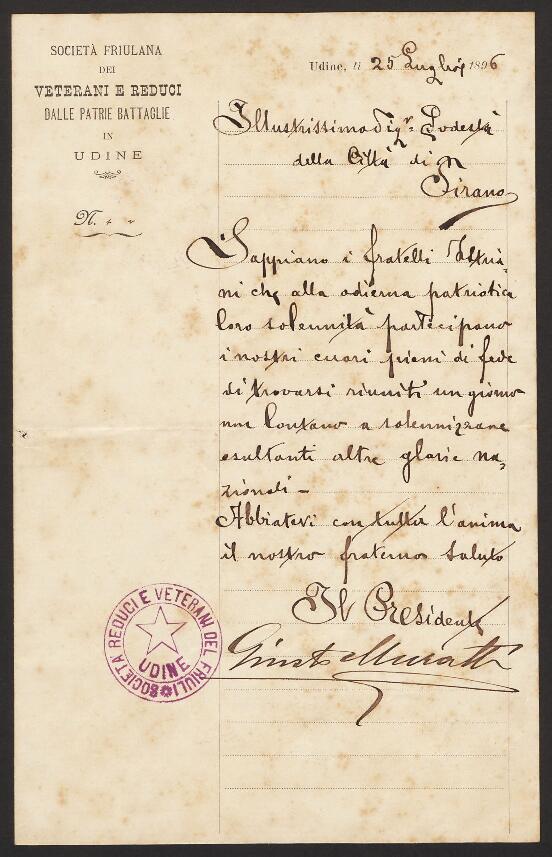 SOCIETÀ FRIULANA
DEI
VETERANI E REDUCI
DALLE PATRIE BATTAGLIE
IN
UDINE
N.
Udine, li 25 Luglio 1896
Illustrissimo Sigr. Podestà
della Città di
Pirano
Sappiano i fratelli Istria-
ni che alla odierna patriotica
loro solennità partecipano
i nostri cuori pieni di fede
di trovarsi riuniti un giorno
non lontano a solennizzare
esultanti altre glorie na-
zionali –
Abbiatevi con tutta l'anima
il nostro fraterno saluto
Il Presidente
Giusto Muratti
SOCIETÀ REDUCI E VETERANI DEL FRIULI
UDINE